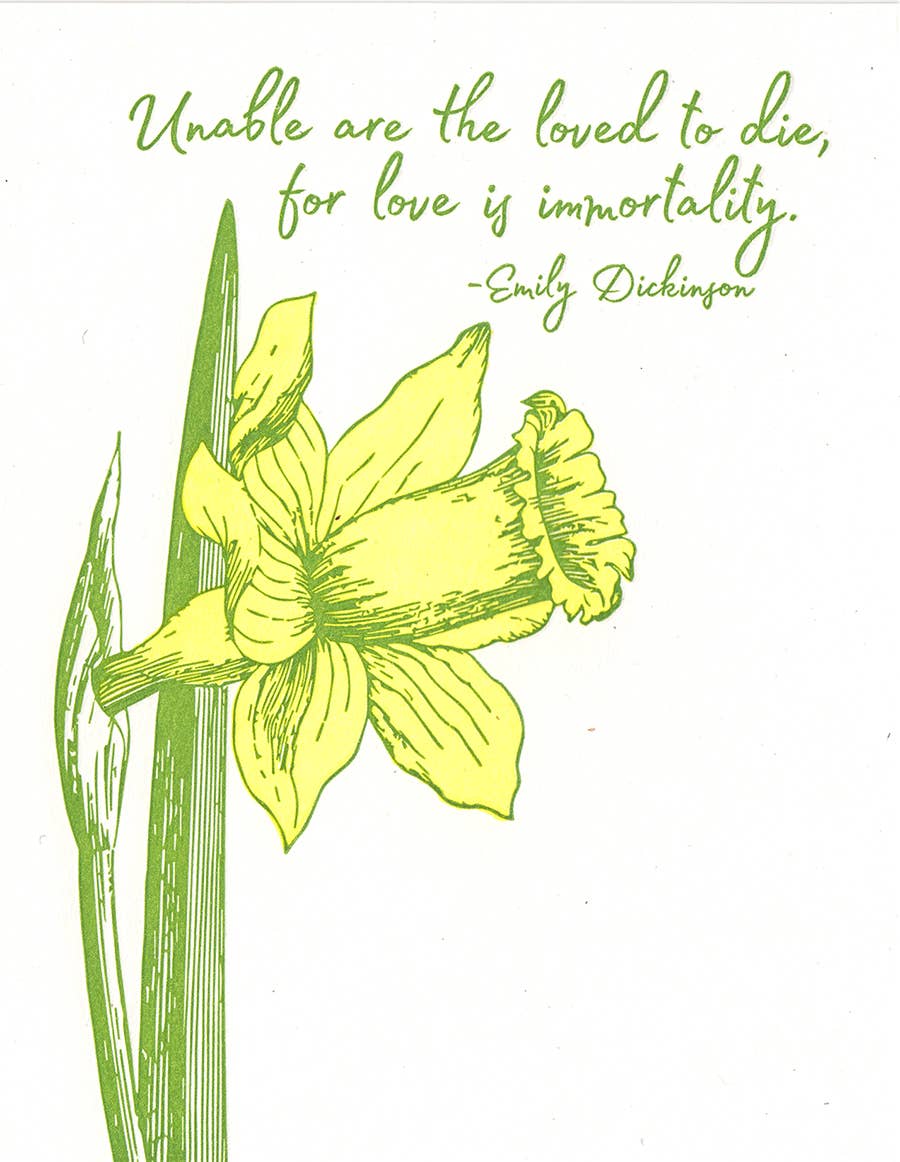 Unable are the loved to die,
for love is immortality.
-Emily Dickinson